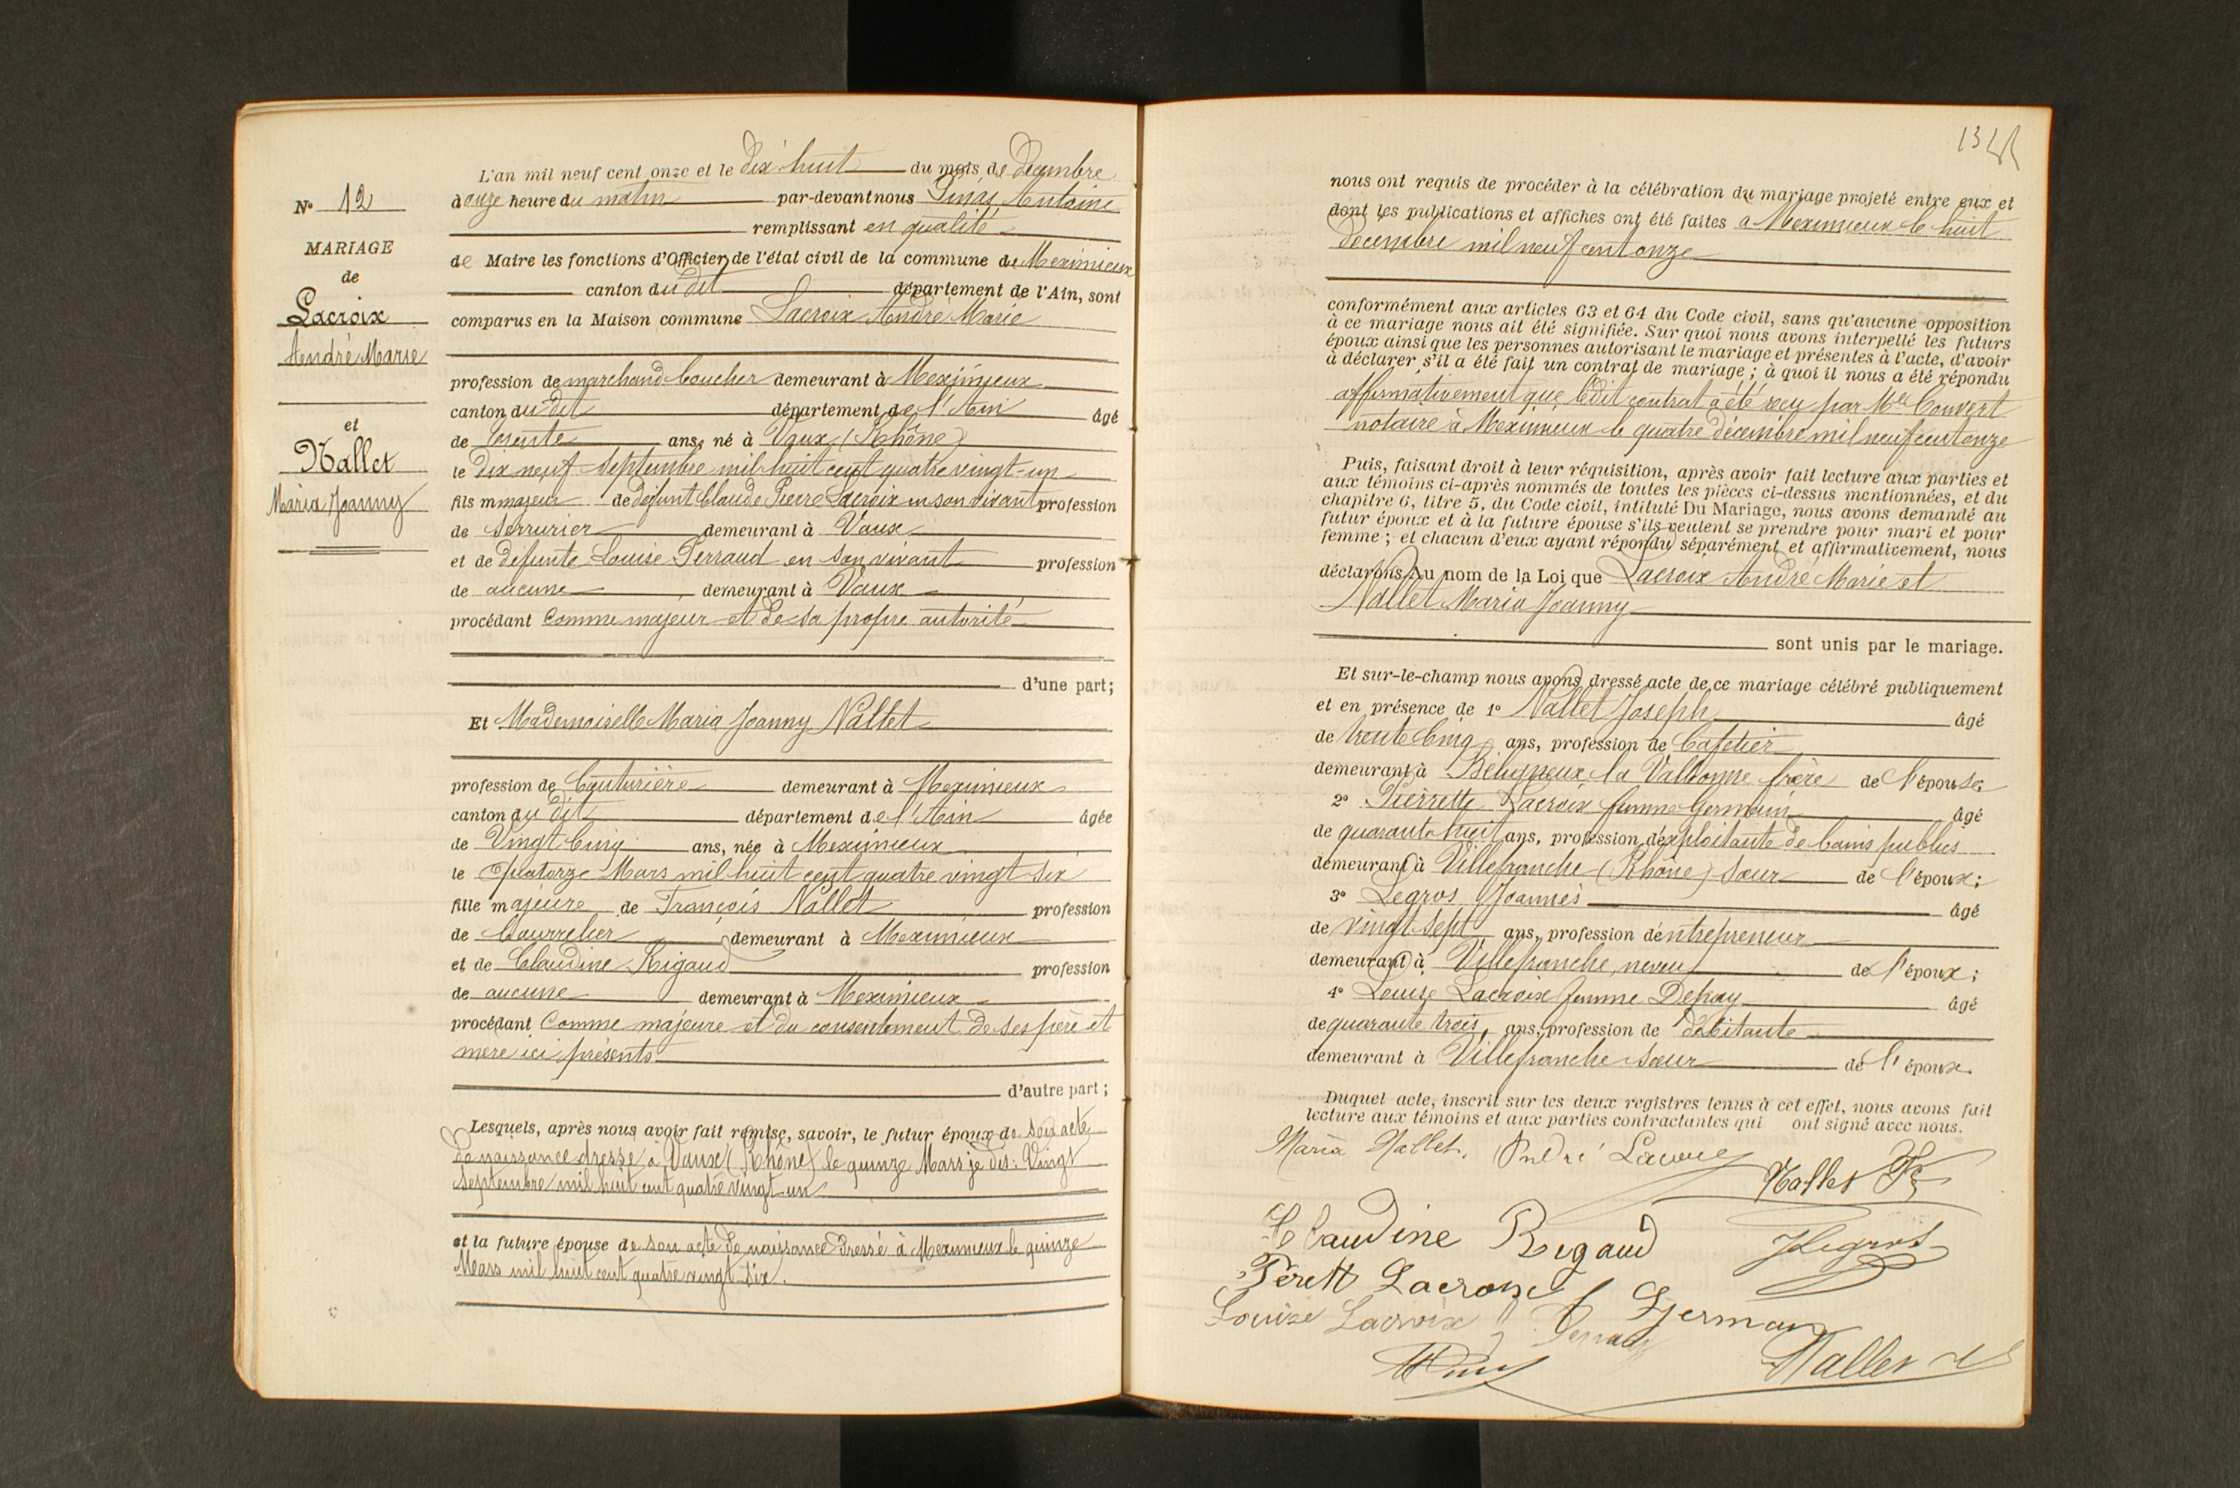 N° 12
MARIAGE
de
Lacroix
André Marie
et
Nallet
Maria Joanny
L'an mil neuf cent onze et le dix huit du mois de décembre
à onze heure du matin par-devant nous Antoine
remplissant en qualité
de Maire les fonctions d'Officier de l'état civil de la commune de Meximieux
canton du dit département de l'Ain, sont
comparus en la Maison commune Lacroix André Marie
profession de marchand boucher demeurant à Meximieux
canton du dit département de l'Ain âgé
de trente ans, né à Vaux (Rhône)
le dix neuf septembre mil huit cent quatre vingt-un
fils majeur de défunt Claude Pierre Lacroix en son vivant profession
de serrurier demeurant à Vaux
et de défunte Louise Perraud en son vivant profession
de aucune demeurant à Vaux
procédant comme majeur et de sa propre autorité
d'une part;
Et Mademoiselle Maria Joanny Nallet
profession de Couturière demeurant à Meximieux
canton du dit département de l'Ain âgée
de Vingt Cinq ans, née à Meximieux
le Quatorze Mars mil huit cent quatre vingt six
fille majeure de François Nallet profession
de Bourrelier demeurant à Meximieux
et de Claudine Rigaud profession
de aucune demeurant à Meximieux
procédant comme majeure et du consentement de ses père et
mère ici présents
d'autre part;
Lesquels, après nous avoir fait remise, savoir, le futur époux de son acte
de naissance dressé à Vaux (Rhône) le quinze Mars je dis: Vingt
septembre mil huit cent quatre vingt un
et la future épouse de son acte de naissance dressé à Meximieux le quinze
Mars mil huit cent quatre vingt six.
nous ont requis de procéder à la célébration du mariage projeté entre eux et
dont les publications et affiches ont été faites à Meximieux le huit
décembre mil neuf cent onze
conformément aux articles 63 et 64 du Code civil, sans qu'aucune opposition
à ce mariage nous ait été signifiée. Sur quoi nous avons interpellé les futurs
époux ainsi que les personnes autorisant le mariage et présentes à l'acte, d'avoir
à déclarer s'il a été fait un contrat de mariage; à quoi il nous a été répondu
affirmativement que ledit contrat a été reçu par Me Convert
notaire à Meximieux le quatre décembre mil neuf cent onze
Puis, faisant droit à leur réquisition, après avoir fait lecture aux parties et
aux témoins ci-après nommés de toutes les pièces ci-dessus mentionnées, et du
chapitre 6, titre 5, du Code civil, intitulé Du Mariage, nous avons demandé au
futur époux et à la future épouse s'ils veulent se prendre pour mari et pour
femme; et chacun d'eux ayant répondu séparément et affirmativement, nous
déclarons Au nom de la Loi que Lacroix André Marie et
Nallet Maria Joanny
sont unis par le mariage.
Et sur-le-champ nous avons dressé acte de ce mariage célébré publiquement
et en présence de 1° Nallet Joseph âgé
de trente cinq ans, profession de Cafetier
demeurant à Béligneux la Valbonne frère de l'épouse;
2° Pierrette Lacroix femme Germain âgé
de quarante huit ans, profession d'exploitante de bains publics
demeurant à Villefranche (Rhône) sœur de l'époux;
3° Legros Joannès âgé
de vingt sept ans, profession d'entrepreneur
demeurant à Villefranche, neveu de l'époux;
4° Louise Lacroix femme Depay âgé
de quarante trois ans, profession de débitante
demeurant à Villefranche sœur de l'époux.
Duquel acte, inscrit sur les deux registres tenus à cet effet, nous avons fait
lecture aux témoins et aux parties contractantes qui ont signé avec nous.
Maria Nallet. André Lacroix
Nallet
Claudine Rigaud JLegros
Lacroix
Louise Lacroix German
Nallet